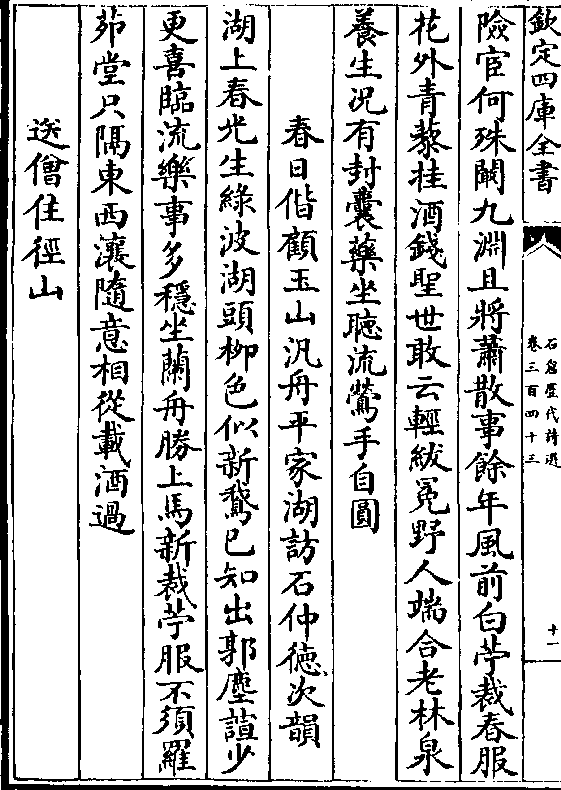 欽定四庫全書
石倉歷代詩選
卷三百四十三
十一
險宦何殊闞九淵且將蕭散事餘年風前白苧裁春服
花外青藜挂酒錢聖世敢云輕紱冕野人端合老林泉
養生況有封囊藥坐聽流鶯手自圓
春日偕顧玉山汎舟平家湖訪石仲德次韻
湖上春光生綠波湖頭柳色似新鵞已知出郭塵諠少
更喜臨流樂事多穩坐蘭舟勝上馬新裁苧服不須羅
茆堂只隔東西瀼隨意相從載酒過
送僧住徑山